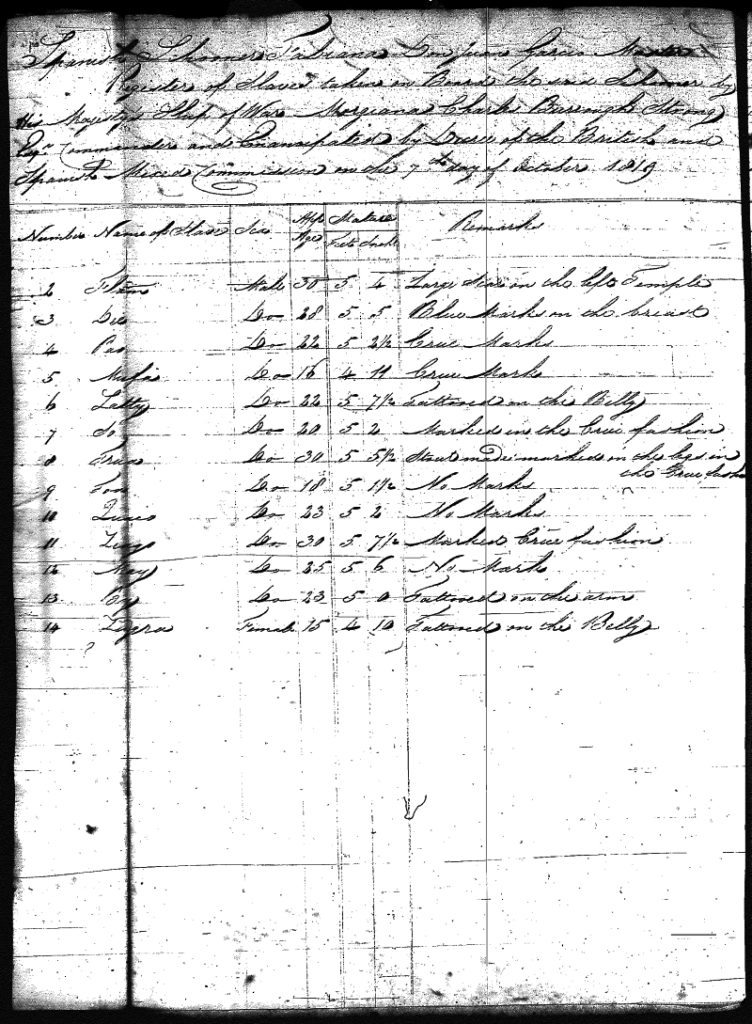 Spanish Schooner Fabiana Don Juan Garcia Master
Register of Slaves taken on Board the said Schooner by
His Majesty's Ship of War Morgiana Charles Burrough Strong
Esqr. Commander and Emancipated by Decree of the British and
Spanish Mixed Commission on the 7th day of October 1819
Number Name of Slave Sex App Age Stature Feet Inch Remarks
2 Male 30 5 4 Large Scar on the left Temple
3 Do 28 5 5 Blue Marks on the breast
4 Do 22 5 2½ Crue Marks
5 Do 16 4 11 Crue Mark
6 Latty Do 22 5 7½ Tattooed on the Belly
7 Do 20 5 2 Marked in the Crue fashion
8 Do 30 5 5½ Stout made marked on the legs in
the Crue fashion
9 Do 18 5 1½ No Marks
10 Do 23 5 2 No Marks
11 Do 30 5 7½ Marked Crue fashion
12 May Do 25 5 6 No Mark
13 Do 23 5 0 Tattooed on the arm
14 Female 15 4 10 Tattooed on the Belly